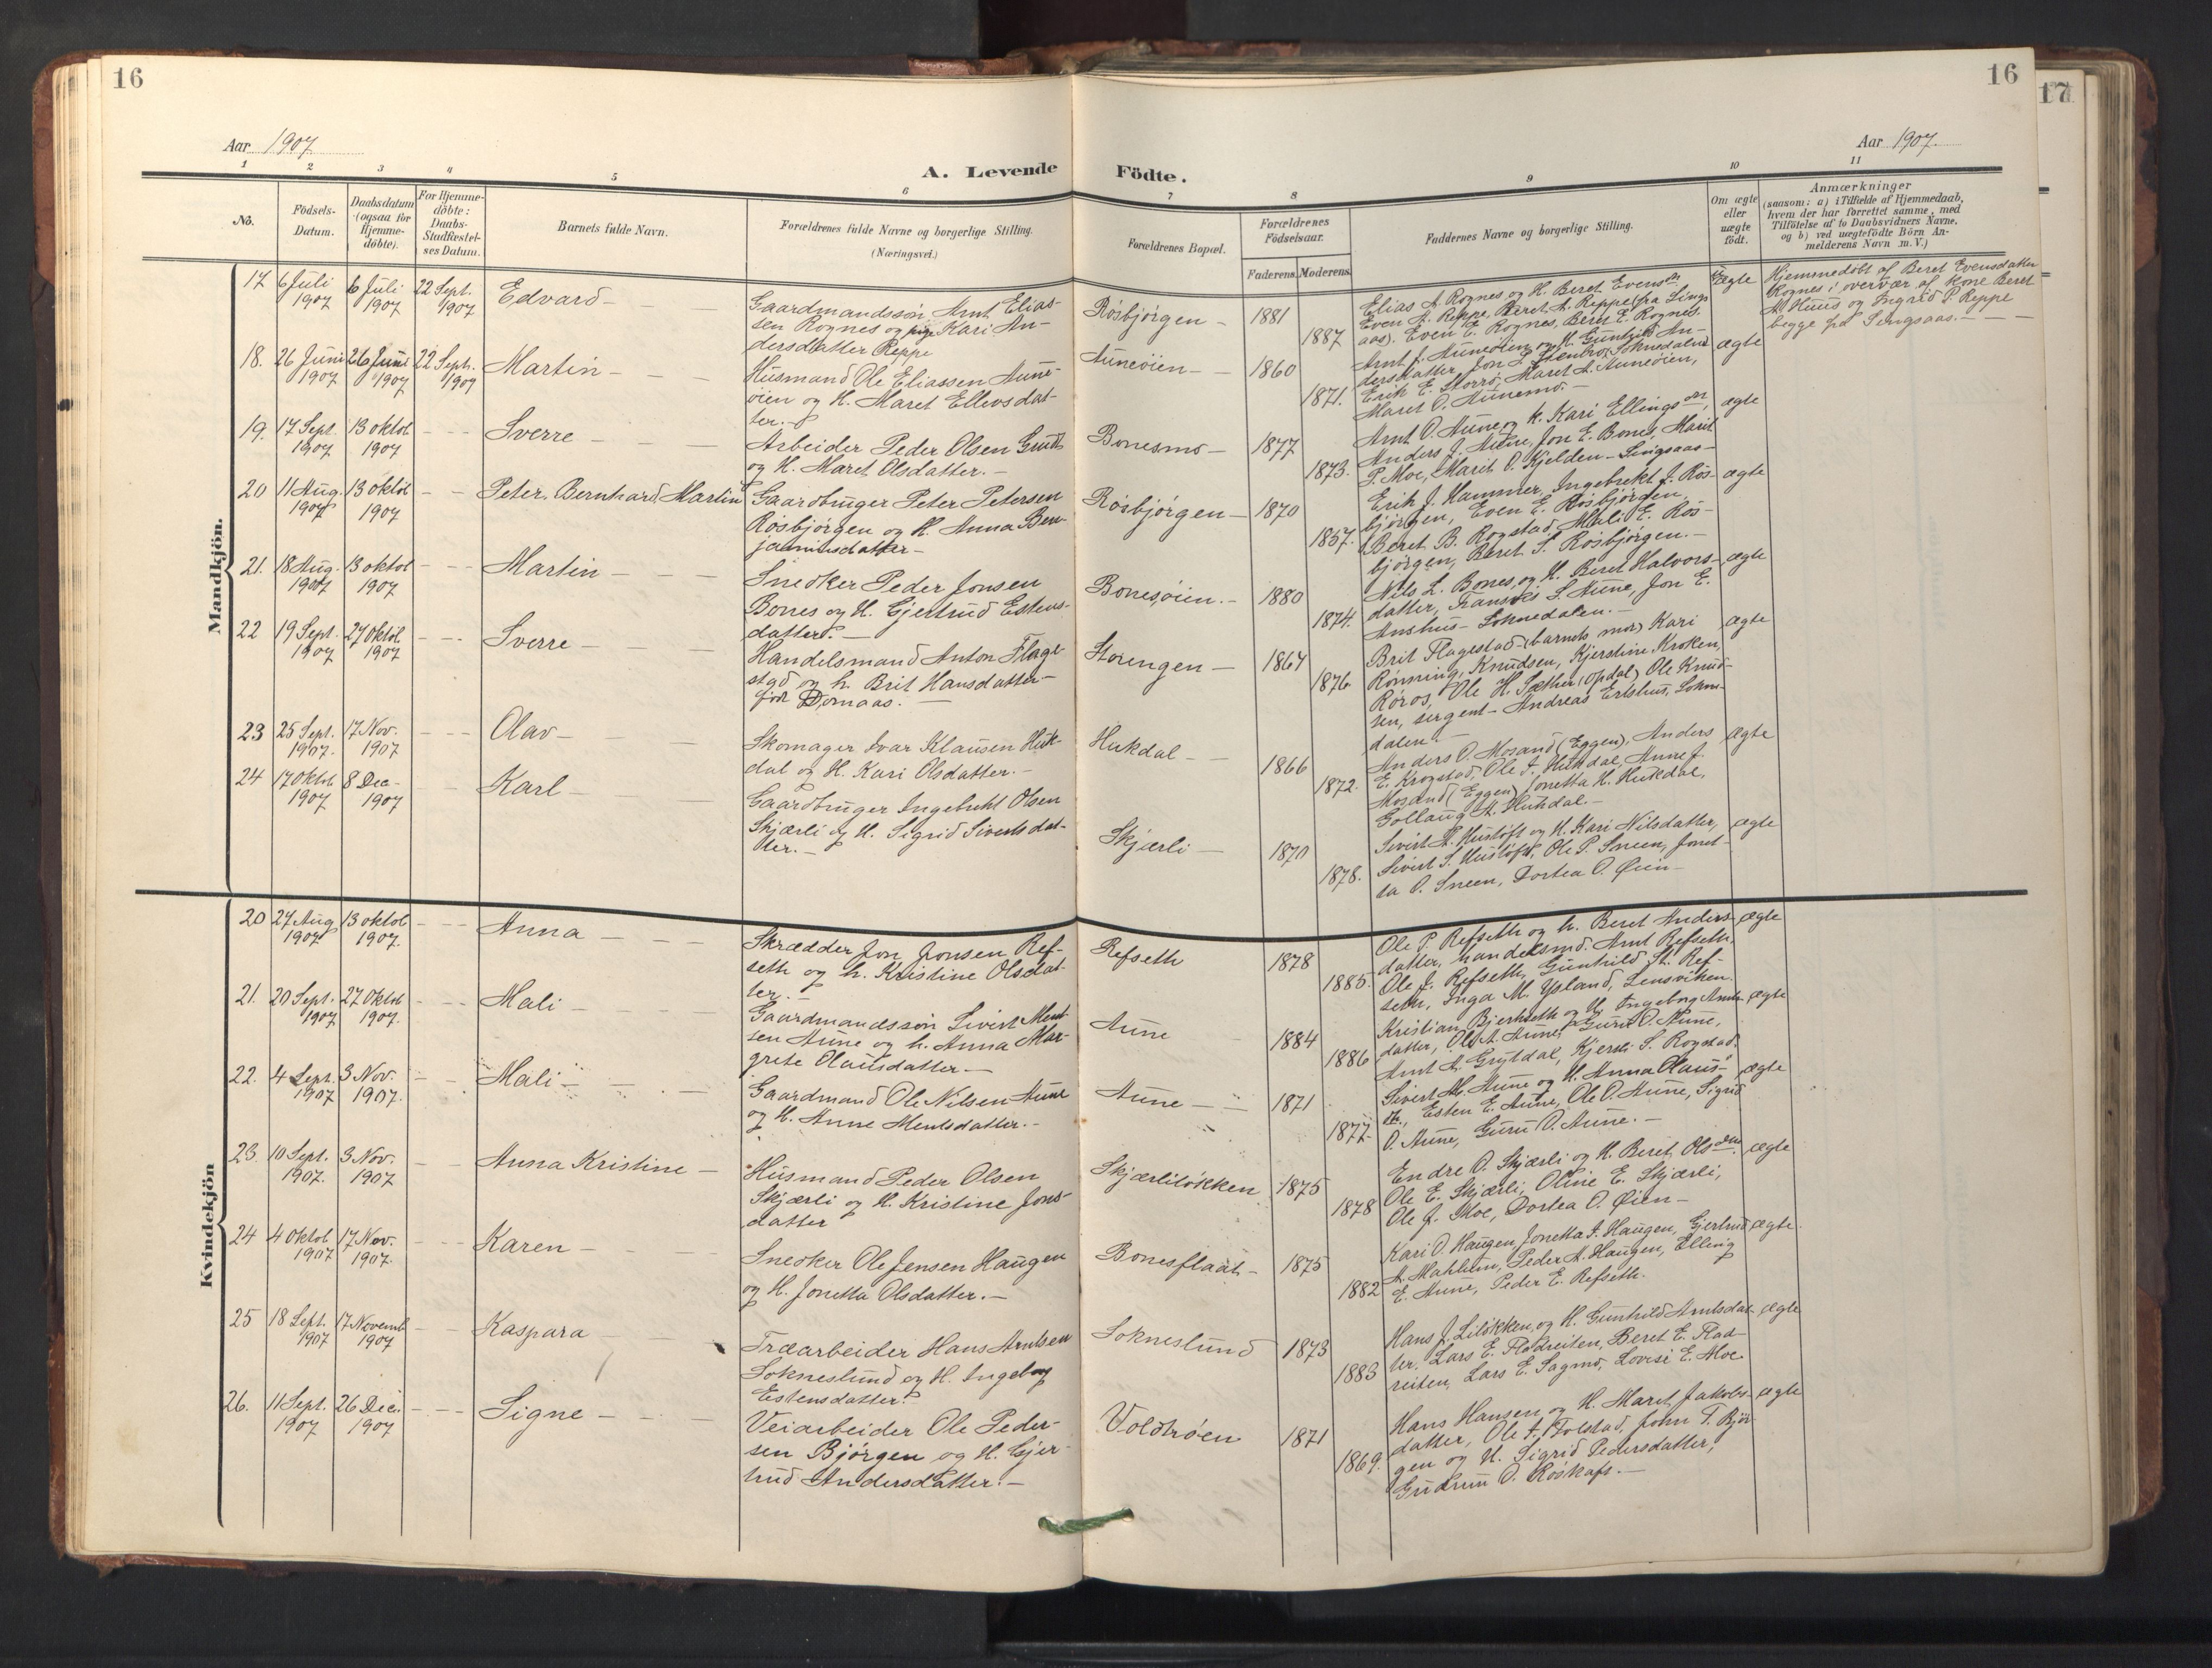 16
16
17
Aar 1907
Aar 1907.
A. Levende Födte.
1 2 3 4 5 6 7 8 9 10 11
No.
Födsels-
Datum.
Daabsdatum
(ogsaa for
Hjemme-
döbte).
For Hjemme-
döbte:
Daabs-
Stadfæstel-
ses Datum.
Barnets fulde Navn.
Forældrenes fulde Navne og borgerlige Stilling.
(Næringsvei.)
Forældrenes Bopæl.
Forældrenes
Födselsaar.
Faderens. Moderens.
Faddernes Navne og borgerlige Stilling.
Om ægte
eller
uægte
födt.
Anmærkninger
(saasom: a) i Tilfælde af Hjemmedaab,
hvem der har forrettet samme, med
Tilföielse af to Daabsvidners Navne.
og b) ved uægtefödte Börn An-
melderens Navn m. V.)
Mandkjön.
17 6 Juli 1907 6 Juli 1907 22 Sept. 1907 Edvard
Gaardmandssön Arnt Elias-
sen Rognes og pige Kari An-
dersdatter Reppe
Rösbjörgen 1881 1887
Elias A. Rognes og H. Beret Evensdtr
Even A. Reppe, Beret A. Reppe (fra Sings
aas). Even E. Rognes, Beret E. Rognes.
Uægte
Hjemmedöbt af Beret Evensdatter
Rognes i overvær af kone Beret
A. Huus og Ingrid P. Reppe
begge fra Singsaas.
18. 26 Juni 1907 26 Juni 1907 22 Sept. 1907 Martin
Husmand Ole Eliassen Aune-
öien og H. Maret Ellevsdat-
ter.
Auneöien 1860 1871.
Arnt J. Auneöien og H. Gunhild An-
dersdatter, Jon L. Stenbro, Soknedalen
Erik E. Storrö, Maret A. Auneöien,
Maret O. Aunemo.
ægte
19. 17 Sept. 1907 13 oktob 1907 Sverre
Arbeider Peder Olsen
og H. Maret Olsdatter.
Bonesmo 1877 1873.
Arnt O. Aune og k. Kari Ellingsdtr,
Anders J. Aune, Jon E. Bones, Marit
P. Moe, Marit O. Kjelden - Singsaas
ægte
20 11 Aug. 1907 13 oktob 1907 Peter Bernhard Martin
Gaardbruger Peter Petersen
Rösbjörgen og H. Anna Ben-
jaminsdatter
Rösbjörgen 1870 1857.
Erik J. Hammer, Ingebrekt J. Rös-
björgen, Even E. Rösbjörgen,
Beret B. Rogstad, Mali E. Rös-
björgen, Beret S. Rösbjörgen.
ægte
21. 18 Aug. 1907 13 oktob 1907 Martin
Snedker Peder Jonsen
Bones og H. Gjertrud Estens-
datter.
Bonesöien. 1880 1874.
Nils L. Bones og H. Beret Halvors-
datter, S. Aune, Jon E.
Anshus - Soknedalen.
ægte
22 19 Sept. 1907 27 oktob. 1907 Sverre
Handelsmand Anton Flage-
stad og h. Brit Hansdatter
född Domaas.
Storengen 1864 1876
Brit Flagestad (barnets mor) Kari
Rönning, Knudsen, Kjerstine Kroken,
Röros, Ole H. Sæther, (Opdal) Ole Knud-
sen, sergent - Andreas Ertshus, Sokne-
dalen.
ægte
23 25 Sept. 1907. 17 Nov. 1907 Olav
Skomager Ivar Klausen Huk-
dal og H. Kari Olsdatter.
Hukdal 1866 1872.
Anders O. Mosand (Eggen), Anders
E. Krogstad, Ole I. Hukdal, Anne J.
Mosand (Eggen) Jonetta H. Hukdal,
Gollaug A. Hukdal.
ægte
24 17 Oktob 1907 8 Dec 1907 Karl
Gaardbruger Ingebrekt Olsen
Skjærli og H. Sigrid Sivertsdat-
ter.
Skjærli 1870 1878.
Sivert A. Hustöft og H. Kari Nilsdatter,
Sivert S. Hustöft, Ole P. Sneen, Jonet-
ta O. Sneen, Dortea O. Öien
ægte
Kvindekjön
20 27 Aug 1907 13 oktob 1907. Anna
Skrædder Jon Jonsen Ref-
seth og h. Kristine Olsdat-
ter.
Refseth 1878 1885.
Ole P. Refseth og h. Beret Anders-
datter, handelsmd. Arnt Refseth,
Ole J. Refseth, Gunhild St. Ref-
seth, Inga M. Ysland, Lensviken
ægte
21. 20 Sept. 1907 27 Oktob 1907. Mali
Gaardmandssön Sivert Ment-
sen Aune og h. Anna Mar-
grete Olausdatter
Aune 1884 1886
Kristian Bjerkseth og H. Ingeborg Arnts-
datter, Ole A. Aune, Guru O. Aune,
Arnt A. Grytdal, Kjersti S. Rogstad.
ægte
22. 4 Sept. 1907 3 Nov. 1907. Mali
Gaardmand Ole Nilsen Aune
og H. Anne Mentsdatter.
Aune 1871 1877.
Sivert M. Aune og H. Anna Olaus-
dtr., Esten E. Aune, Ole O. Aune, Sigrid
O. Aune, Guru O. Aune.
ægte
23. 10 Sept. 1907. 3 Nov. 1907 Anna Kristine
Husmand Peder Olsen
Skjærli og H. Kristine Jons-
datter
Skjærlilökken 1875 1878
Endre O. Skjærli og H. Beret Olsdtr.
Ole E. Skjærli, Oline E. Skjærli,
Ole J. Moe, Dortea O. Öien
ægte
24 4 Oktob 1907 17 Nov. 1907. Karen
Snedker Ole Jensen Haugen
og H. Jonetta Olsdatter.
Bonesflaat 1875 1882
Kari O. Haugen, Jonetta I. Haugen, Gjertrud
A. Mahlum, Peder A. Haugen, Elling
E. Aune, Peder E. Refseth.
ægte.
25 18 Sept. 1907 17 Novemb 1907 Kaspara
Træarbeider Hans Arntsen
Sokneslund og H. Ingeborg
Estensdatter.
Sokneslund 1873 1883
Hans J. Lilökken, og H. Gunhild Arntsdat-
ter, Lars E. Fladreiten, Beret E. Flad-
reiten, Lars E. Sagmo, Lovise E. Moe
ægte
26. 11 Sept. 1907 26 Dec. 1907 Signe
Veiarbeider Ole Peder-
sen Björgen og H. Gjer-
trud Andersdatter.
Voldröen 1871 1869.
Hans Hansen og H. Maret Jakobs-
datter, Ole A. Folstad, John T. Björ-
gen og H. Sigrid Pedersdatter,
Gudrun O. Röskaft.
ægte